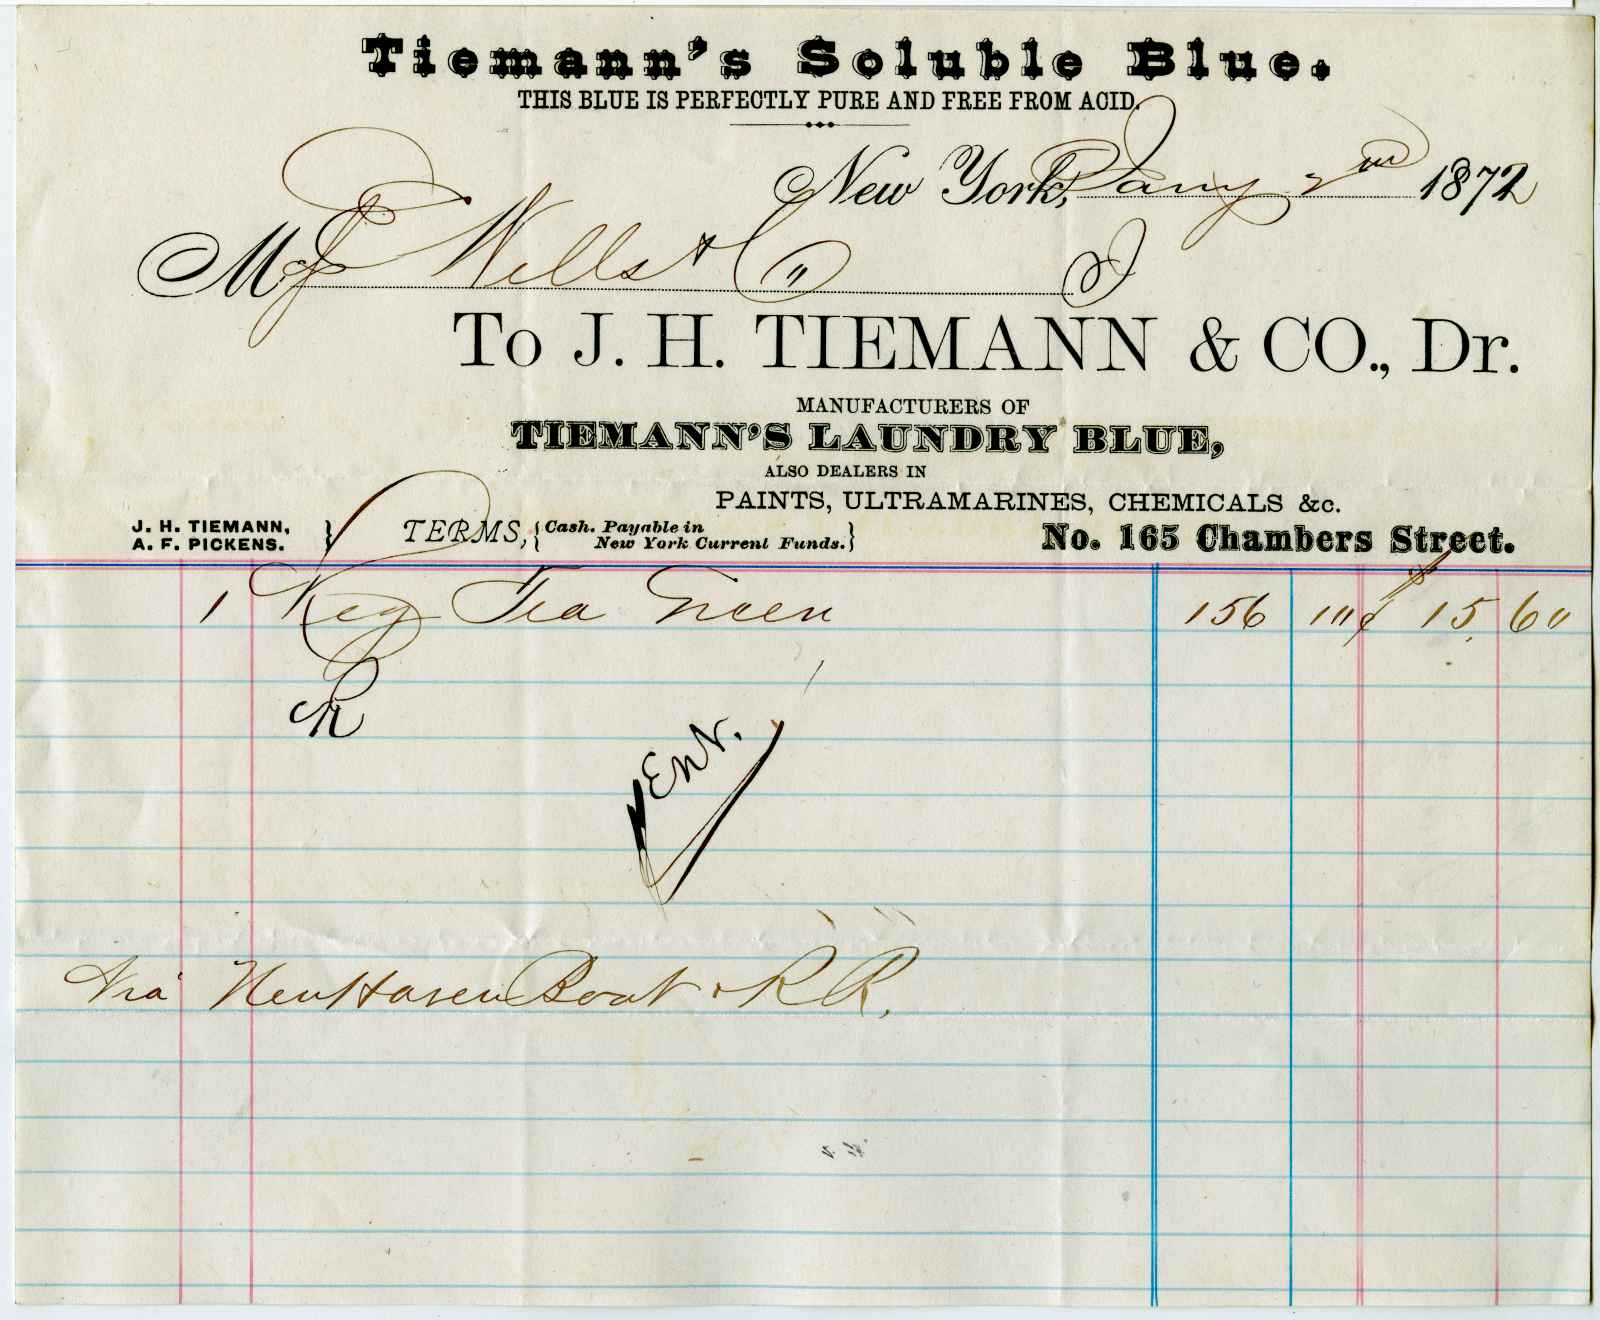 Tiemann's Soluble Blue.
THIS BLUE IS PERFECTLY PURE AND FREE FROM ACID.
New York, Jany 2nd 1872
M E Wells & Co
To J. H. TIEMANN & CO., Dr.
MANUFACTURERS OF
TIEMANN'S LAUNDRY BLUE,
ALSO DEALERS IN
PAINTS, ULTRAMARINES, CHEMICALS &c.
J. H. TIEMANN, A. F. PICKENS. } TERMS, { Cash. Payable in New York Current Funds. } No. 165 Chambers Street.
1 Keg Tea Green 156 10¢ 15.60
R
Ent.
Via New Haven Boat & R R.